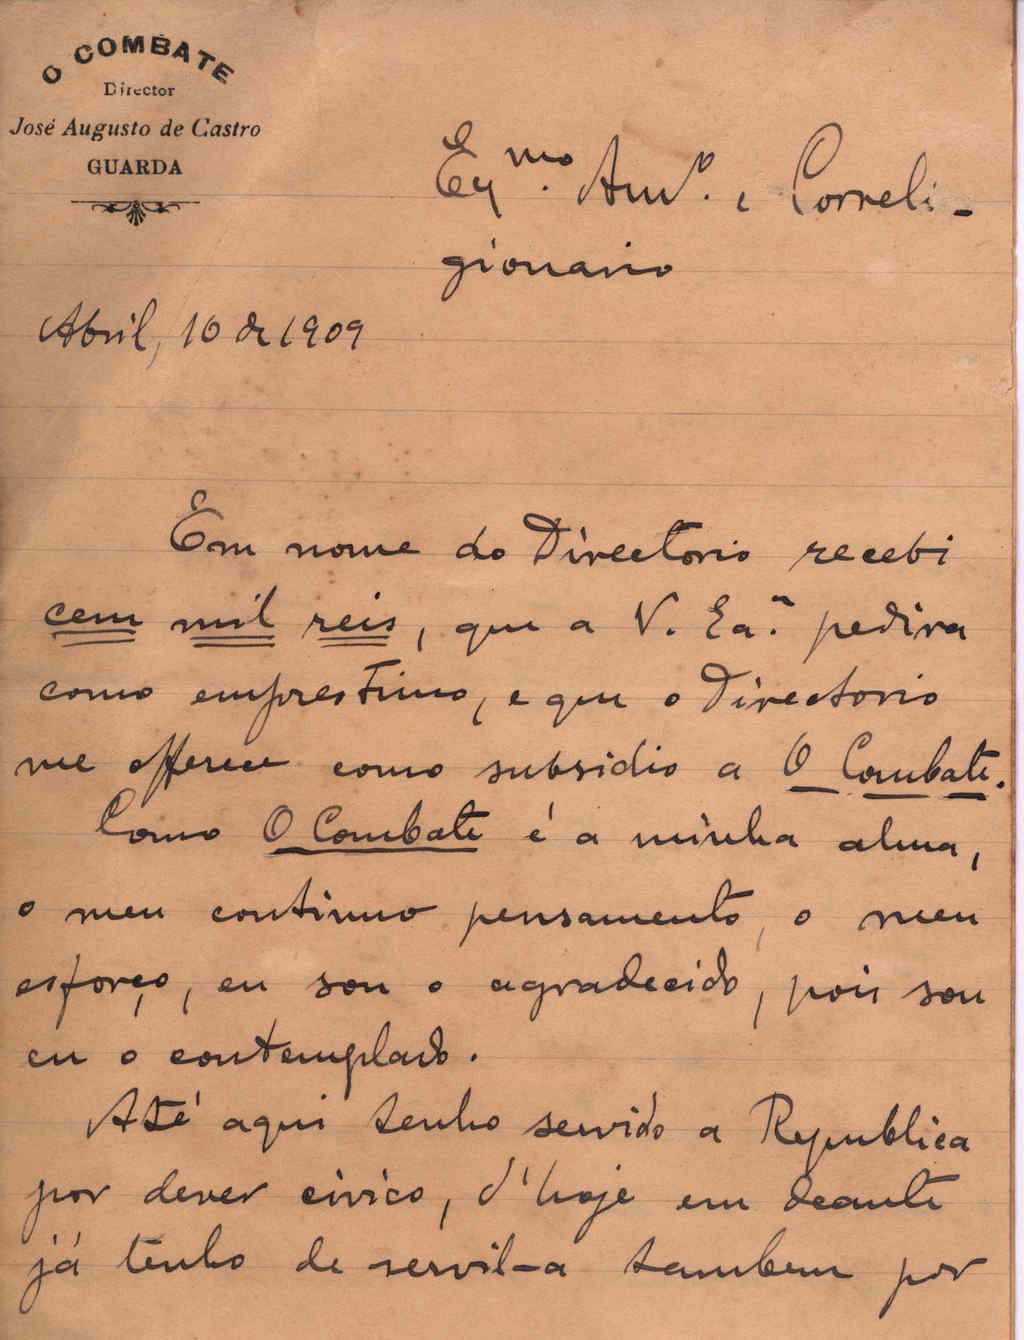 O COMBATE
Director
José Augusto de Castro
GUARDA
Exmo. Amº. e Correli-
gionario
Abril, 10 de 1909
Em nome do Directorio recebi
cem mil reis, que a V. Exª. pedira
como emprestimo, e que o Directorio
me offerece como subsidio a O Combate.
Como O Combate é a minha alma,
o meu continuo pensamento, o meu
esforço, eu sou o agradecido, pois sou
eu o contemplado.
Até aqui tenho servido a Republica
por dever civico, d'hoje em deante
já tenho de servil-a tambem por